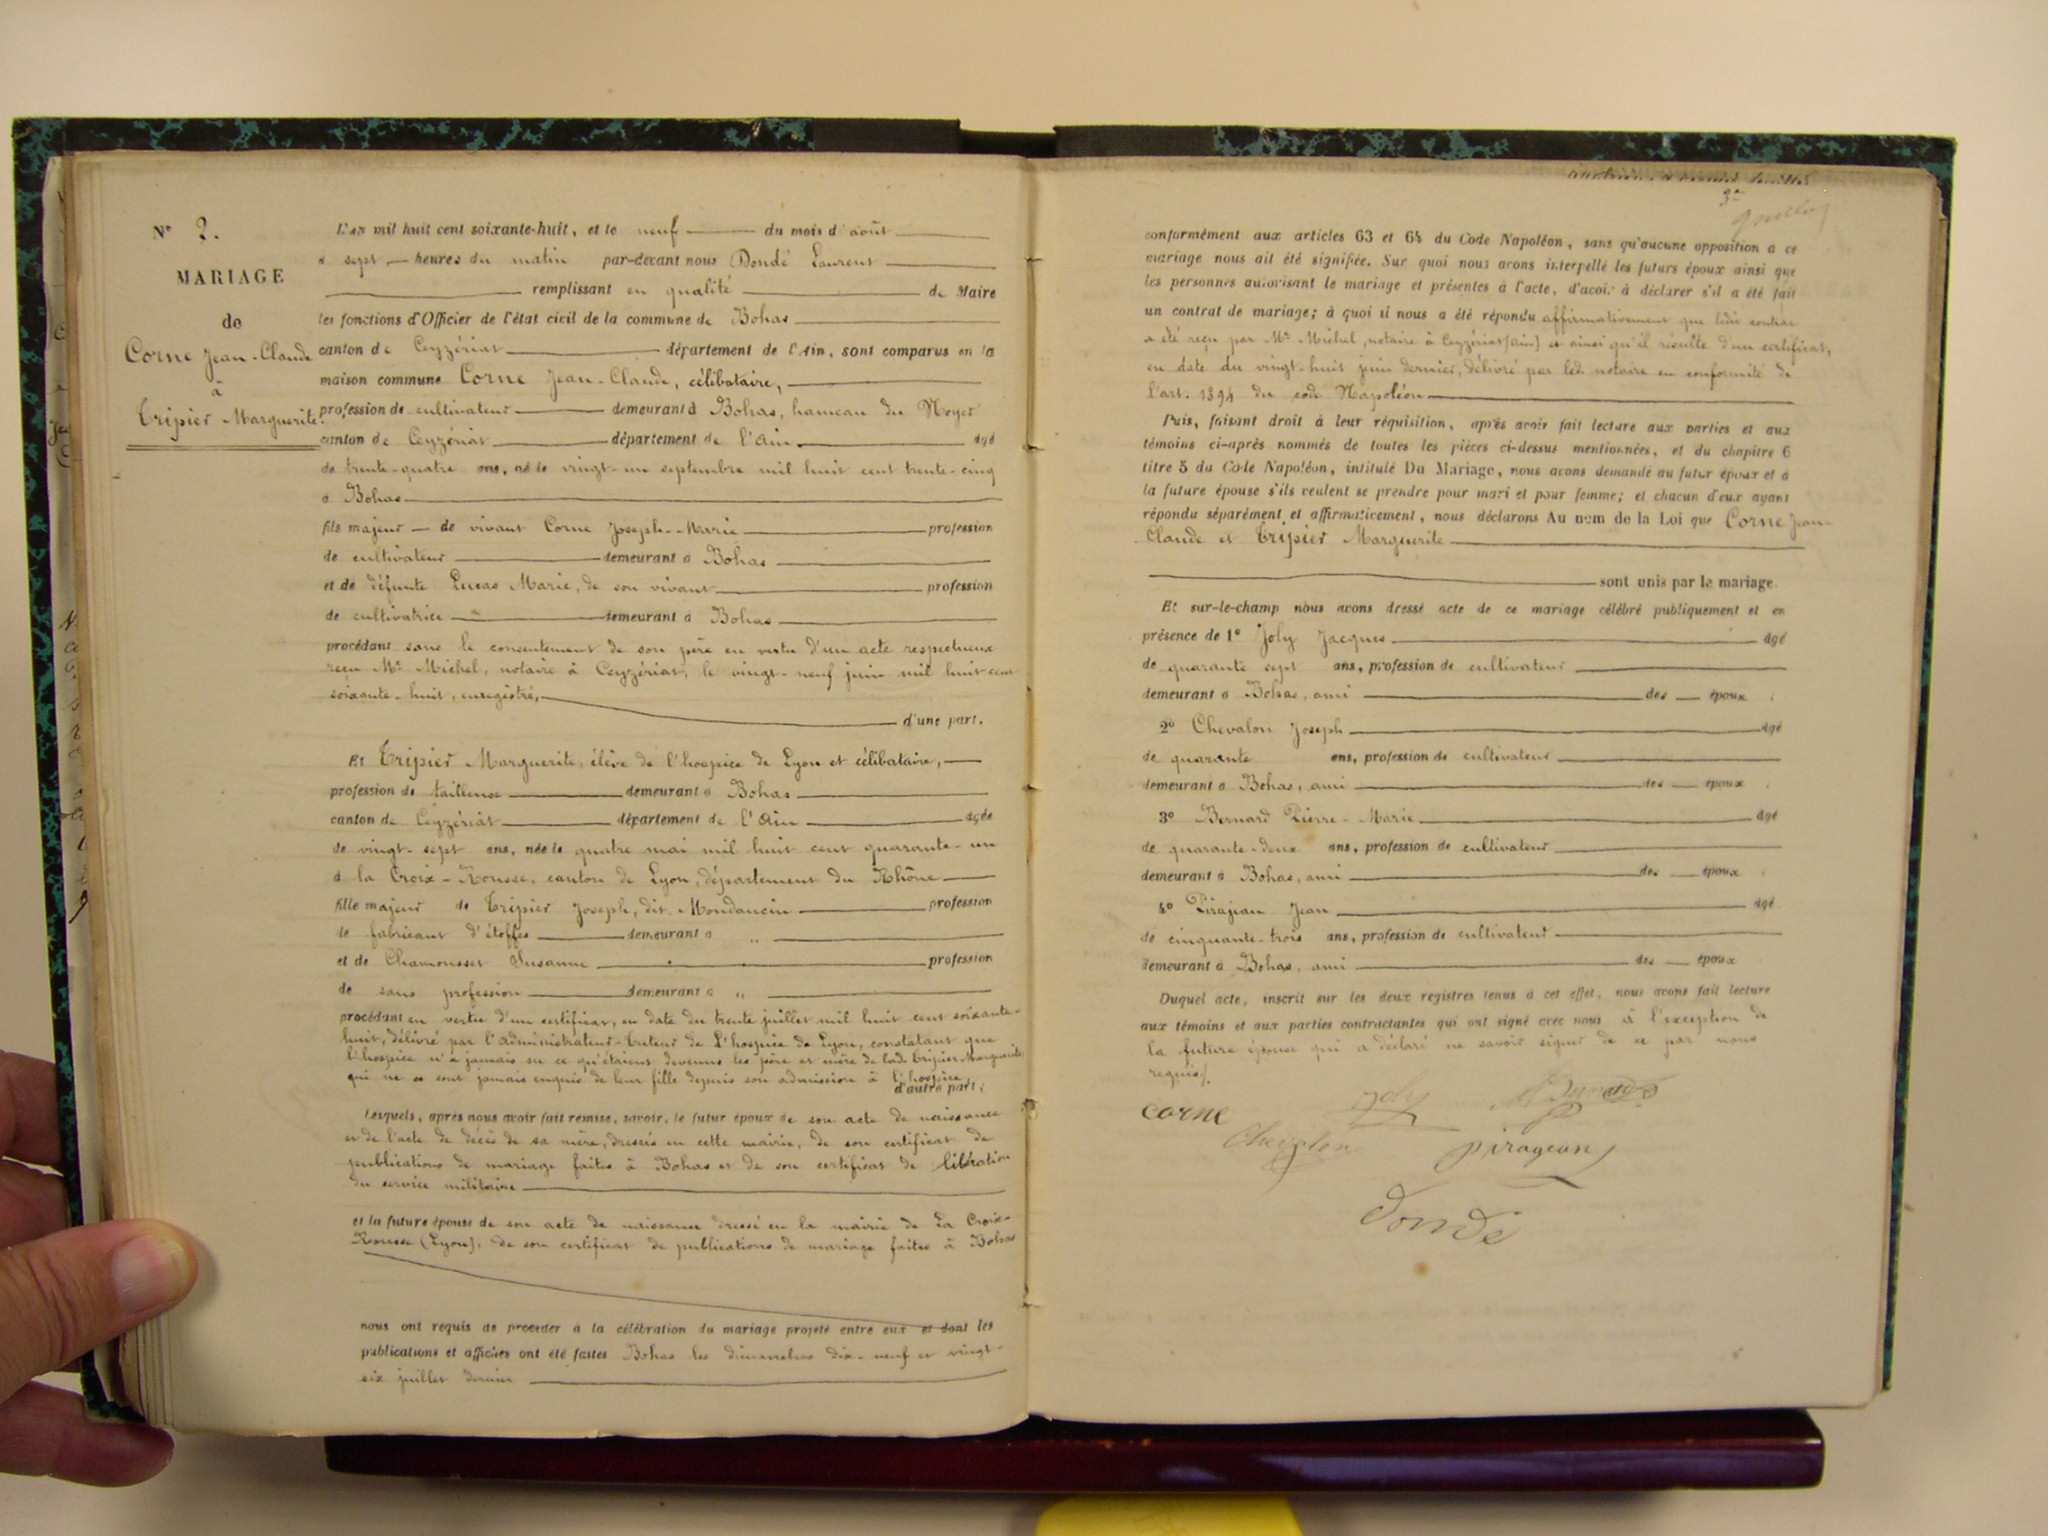 N° 2.
MARIAGE
de
Corne Jean-Claude
à
Tripier Marguerite.
L'an mil huit cent soixante-huit, et le neuf du mois d'août
à sept heures du matin par-devant nous Dondé Laurent
remplissant en qualité de Maire
les fonctions d'Officier de l'état civil de la commune de Bohas
canton de Ceyzériat département de l'Ain, sont comparus en la
maison commune Corne Jean-Claude, célibataire,
profession de cultivateur demeurant à Bohas, hameau du Noyer
canton de Ceyzériat département de l'Ain agé
de trente-quatre ans, né le vingt-un septembre mil huit cent trente-cinq
à Bohas
fils majeur de vivant Corne Joseph-Marie profession
de cultivateur demeurant à Bohas
et de défunte Lucas Marie, de son vivant profession
de cultivatrice demeurant à Bohas
procédant sans le consentement de son père en vertu d'un acte respectueux
reçu Me Michel, notaire à Ceyzériat, le vingt-neuf juin mil huit cent
soixante-huit, enregistré,
d'une part.
Et Tripier Marguerite, élève de l'hospice de Lyon et célibataire,
profession de tailleuse demeurant à Bohas
canton de Ceyzériat département de l'Ain agée
de vingt-sept ans, née le quatre mai mil huit cent quarante-un
à la Croix-Rousse, canton de Lyon, département du Rhône
fille majeur de Tripier Joseph, dit Mondancin profession
de fabricant d'étoffes demeurant à "
et de Chamousset Susanne profession
de sans profession demeurant à "
procédant en vertu d'un certificat, en date du trente juillet mil huit cent soixante-
huit, délivré par l'administrateur-tuteur de l'hospice de Lyon, constatant que
l'hospice n'a jamais su ce qu'étaient devenus les père et mère de lade Tripier Marguerite
qui ne se sont jamais enquis de leur fille depuis son admission à l'hospice,
d'autre part;
Lesquels, après nous avoir fait remise, savoir, le futur époux de son acte de naissance
et de l'acte de décès de sa mère, dressés en cette mairie, de son certificat de
publications de mariage faites à Bohas et de son certificat de libération
du service militaire
et la future épouse de son acte de naissance dressé en la mairie de La Croix-
Rousse (Lyon), de son certificat de publications de mariage faites à Bohas
nous ont requis de procéder à la célébration du mariage projeté entre eux et dont les
publications et affiches ont été faites Bohas les dimanches dix-neuf et vingt-
six juillet dernier
3e
conformément aux articles 63 et 64 du Code Napoléon, sans qu'aucune opposition a ce
mariage nous ait été signifiée. Sur quoi nous avons interpellé les futurs époux ainsi que
les personnes autorisant le mariage et présentes à l'acte, d'avoir à déclarer s'il a été fait
un contrat de mariage; à quoi il nous a été répondu affirmativement que ledit contrat
a été reçu par Me Michel, notaire à Ceyzériat (Ain) et ainsi qu'il résulte d'un certificat,
en date du vingt-huit juin dernier, délivré par ledt notaire en conformité de
l'art. 1394 du code Napoléon
Puis, faisant droit à leur réquisition, après avoir fait lecture aux parties et aux
témoins ci-après nommés de toutes les pièces ci-dessus mentionnées, et du chapitre 6
titre 5 du Code Napoléon, intitulé Du Mariage, nous avons demandé au futur époux et à
la future épouse s'ils veulent se prendre pour mari et pour femme; et chacun d'eux ayant
répondu séparément et affirmativement, nous déclarons Au nom de la Loi que Corne Jean-
Claude et Tripier Marguerite
sont unis par le mariage.
Et sur-le-champ nous avons dressé acte de ce mariage célébré publiquement et en
présence de 1° Joly Jacques agé
de quarante sept ans, profession de cultivateur
demeurant à Bohas, ami des époux
2° Chevalon Joseph agé
de quarante ans, profession de cultivateur
demeurant à Bohas, ami des époux
3° Bernard Pierre-Marie agé
de quarante-deux ans, profession de cultivateur
demeurant à Bohas, ami des époux
4° Pirajean Jean agé
de cinquante-trois ans, profession de cultivateur
demeurant à Bohas, ami des époux
Duquel acte, inscrit sur les deux registres tenus à cet effet, nous avons fait lecture
aux témoins et aux parties contractantes qui ont signé avec nous à l'exception de
la future épouse qui a déclaré ne savoir signer de ce par nous
requis.
corne Joly
Chevalon piragean
Dondé